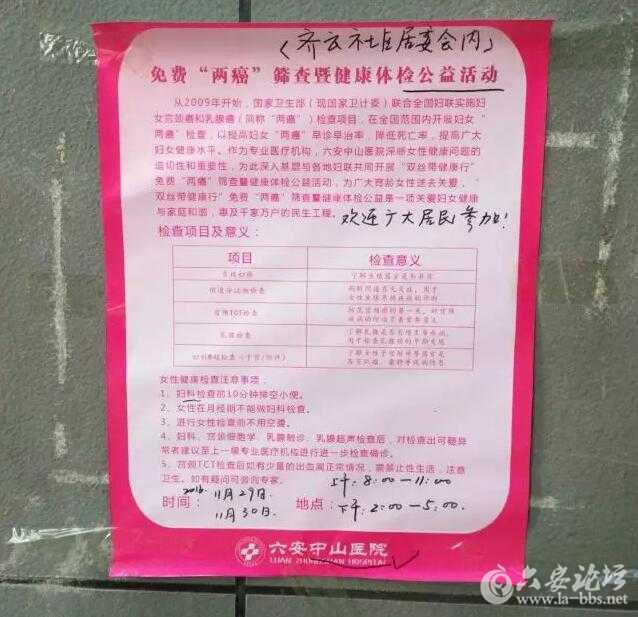 (齐云社区居委会内)
免费“两癌”筛查暨健康体检公益活动
从2009年开始，国家卫生部（现国家卫计委）联合全国妇联实施妇
女宫颈癌和乳腺癌（简称“两癌”）检查项目，在全国范围内开展妇女“
两癌”检查，以提高妇女“两癌”早诊早治率，降低死亡率，提高广大
妇女健康水平。作为专业医疗机构，六安中山医院深晰女性健康问题的
迫切性和重要性，为此深入基层与各地妇联共同开展“双丝带健康行”
免费“两癌”筛查暨健康体检公益活动，为广大育龄女性送去关爱。“
双丝带健康行”免费“两癌”筛查暨健康体检公益是一项关爱妇女健康
与家庭和谐，惠及千家万户的民生工程。欢迎广大居民参加！
检查项目及意义：
项目 检查意义
宫颈TCT检查
乳腺检查
女性健康检查注意事项：
1、妇科检查前10分钟排空小便。
2、女性在月经期不能做妇科检查。
3、进行女性检查前不用空腹。
4、妇科、宫颈细胞学、乳腺触诊、乳腺超声检查后，对检查出可疑异
常者建议至上一级专业医疗机构进行进一步检查确诊。
5、宫颈TCT检查后如有少量的出血属正常情况，需禁止性生活，注意
卫生。如有疑问可咨询专家。
上午：8:00-11:00
时间：2016.11月29日. 地点：下午：2:00-5:00.
11月30日.
六安中山医院
LUAN ZHONGSHAN HOSPITAL
六安论坛
www.la-bbs.net